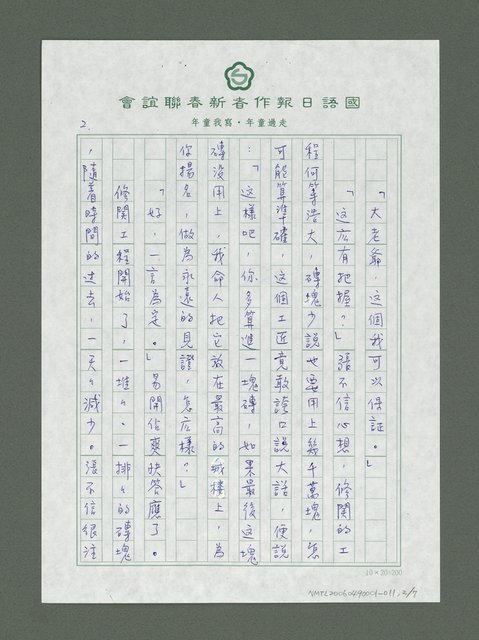 國語日報作者新春聯誼會
走過童年・寫我童年
2.
「大老爺,這個我可以保証。」
「這広有把握?」張不信心想,修関的工
程何等浩大,磚塊少說也要用上幾千萬塊,怎
可能算準確,這個工匠竟敢誇口說大話,便說
:「這樣吧,你多算進一塊磚,如果最後這塊
磚沒用上,我命人把它放在最高的城樓上,為
你揚名,做為永遠的見證,怎広樣?」
「好,一言為定。」易開佔爽快答應了。
修関工程開始了,一堆々、一排々的磚塊
,隨着時間的过去,一天々減少。張不信很注
10×20=200
NMTL20060490001-011, 2/7